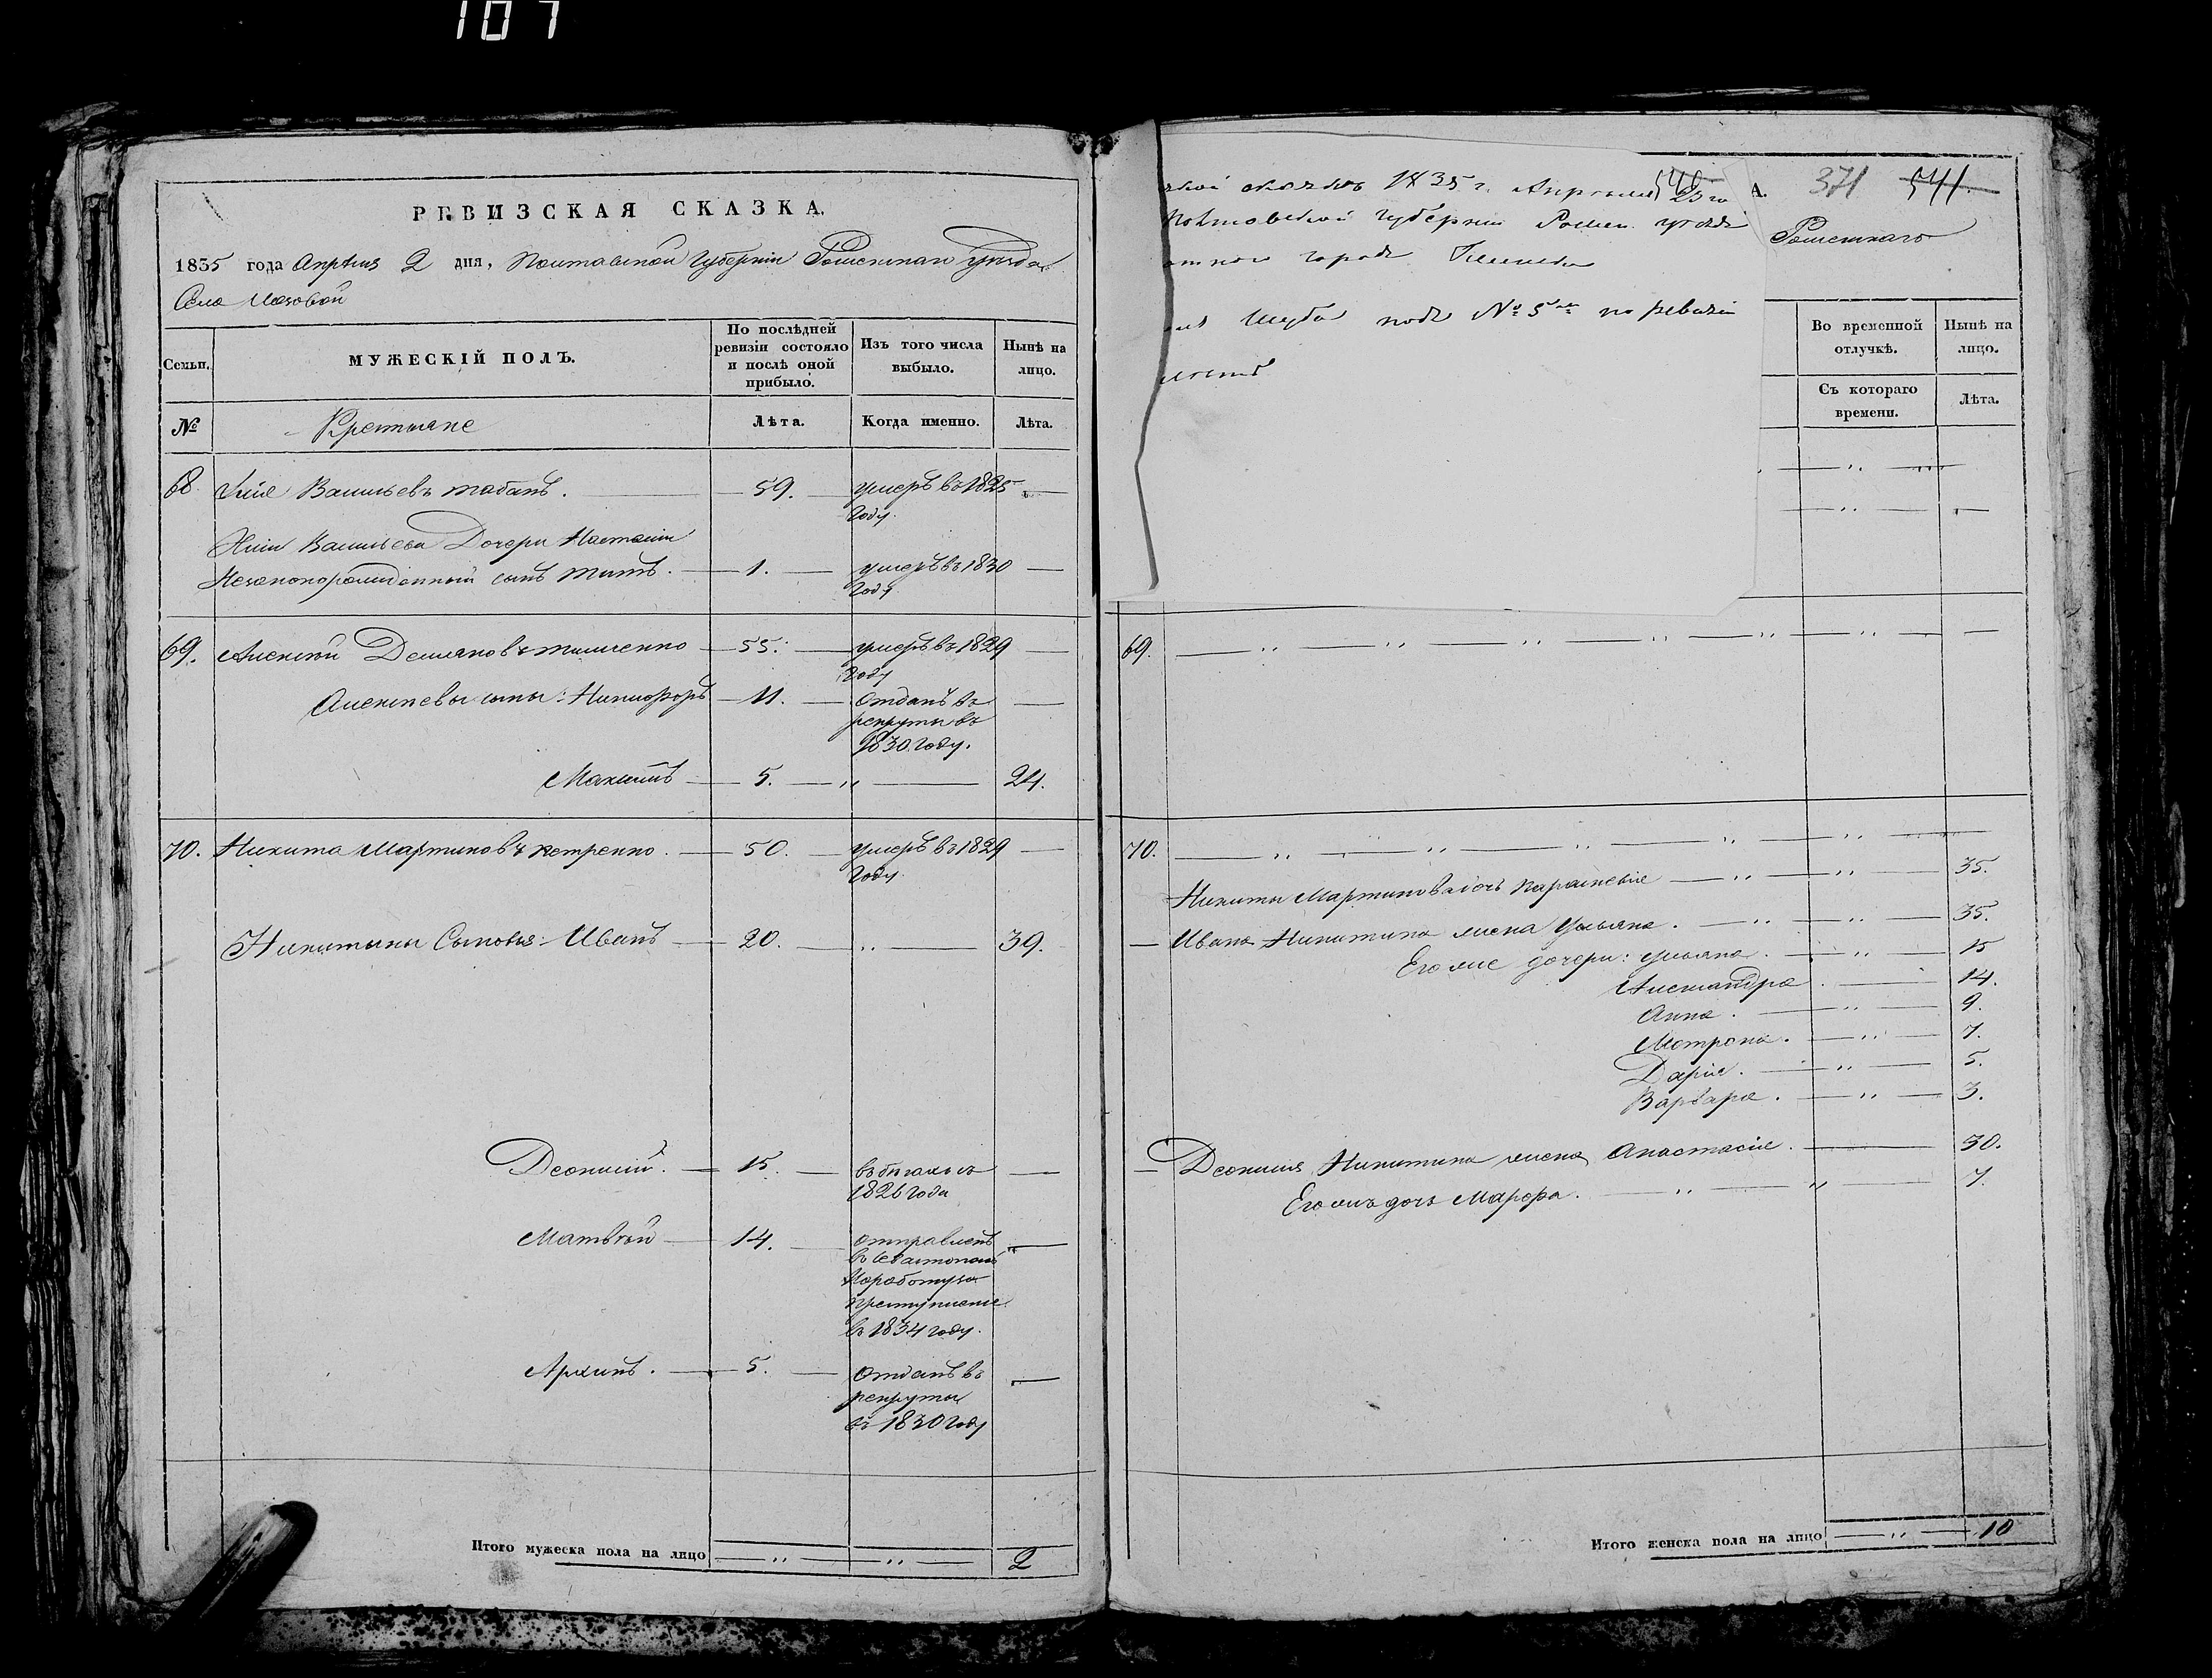 107
РЕВИЗСКАЯ СКАЗКА.
1835 года Апрѣля 2 дня, Полтавской Губерніи Роменскаго уѣзда
Села
Семьи.
МУЖЕСКІЙ ПОЛЪ.
По послѣдней ревизіи состояло и послѣ оной прибыло.
Изъ того числа выбыло.
Нынѣ на лицо.
№
Крестьяне
Лѣта.
Когда именно.
Лѣта.
68. Васильевъ 59. умеръ въ 1825
году.
Васильева Дочери Настасіи
Незаконорожденный сынъ Титъ. 1. умеръ въ 1830
году
69. Алексѣй Демяновъ 55. умеръ въ 1829
году
Алексѣевы сыны: Никифоръ 11. отданъ въ
рекруты въ
1830 году.
Максимъ 5. " 24.
70. Никита Мартиновъ Петренко. 50. умеръ въ 1829
году.
Никитины Сыновья: Иванъ 20. " 39.
Деонисій. 15. въ бѣгахъ съ
1826 года
Матвѣй 14. отправленъ
въ Севастополь
преступленіе
въ 1834 году.
Архипъ. 5. отданъ въ
рекруты
въ 1830 году
Итого мужеска пола на лицо " " 2
1835 г. Апрѣля 25 го
Полтавской Губерніи Ромен. уѣзда
города
Шуба подъ № 5 по ревизіи
540
А. 371 541.
Роменскаго
Во временной отлучкѣ.
Нынѣ на лицо.
Съ котораго времени.
Лѣта.
69.
70.
Никиты Мартинова дочь Параскевія " " 35.
Ивана Никитина жена Ульяна. " " 35.
Его же дочери: Ульяна. " 15
Александра. 14.
Анна. " 9.
Мотрона. " 7.
Дарія. " 5.
Варвара. " 3.
Деонисія Никитина жена Анастасія. 30.
Его жъ дочь Марфа. " " 7.
Итого женска пола на лицо " 10